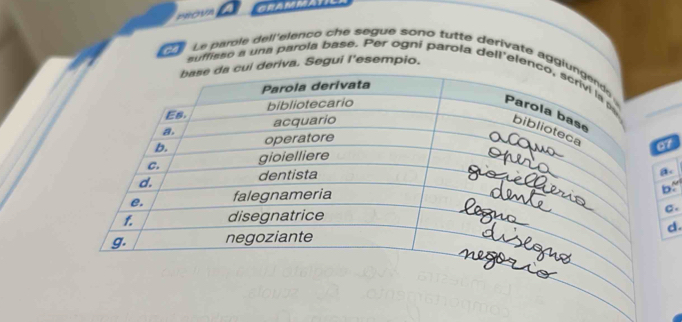 PROVA A GRAMMATICA
C6 Le parole dell'elenco che segue sono tutte derivate aggiungendo
suffisso a una parola base. Per ogni parola dell'elenco, scrivi la
base da cui deriva. Segui l'esempio.
Parola derivata Parola base
Es. bibliotecario biblioteca
a. acquario acqua
b. operatore opera
c. gioielliere gioielleria
d. dentista dente
e. falegnameria legno
f. disegnatrice disegno
g. negoziante negozio
C7
a.
b.
c.
d.